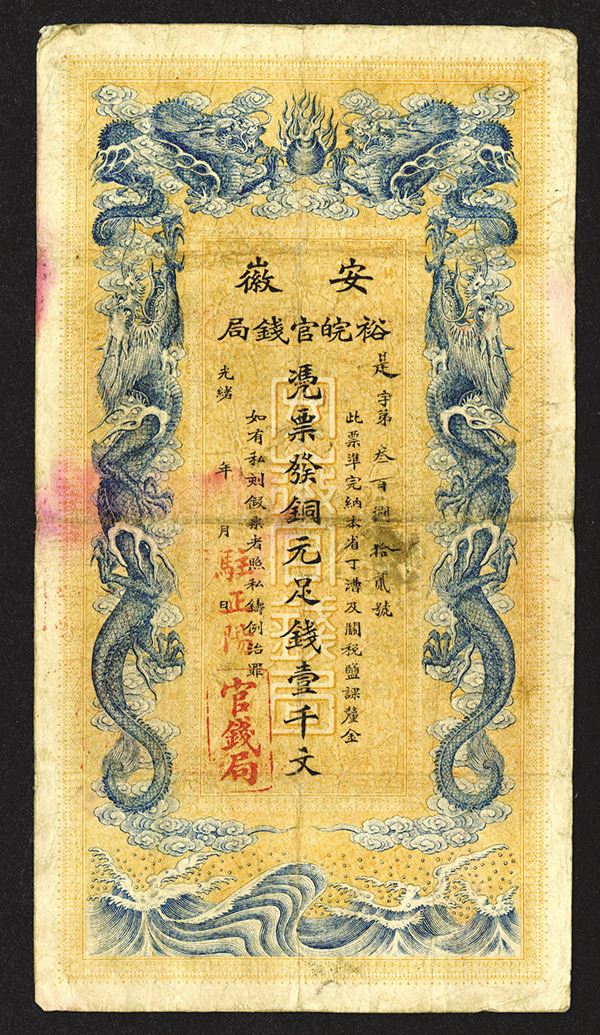 安徽
裕皖官錢局
是字第叁百捌拾貳號
此票準完納本省丁漕及關稅鹽課釐金
憑票發銅元足錢壹千文
如有私刻假票者照私鑄例治罪
光緒 年 月 日
駐正陽
官錢局